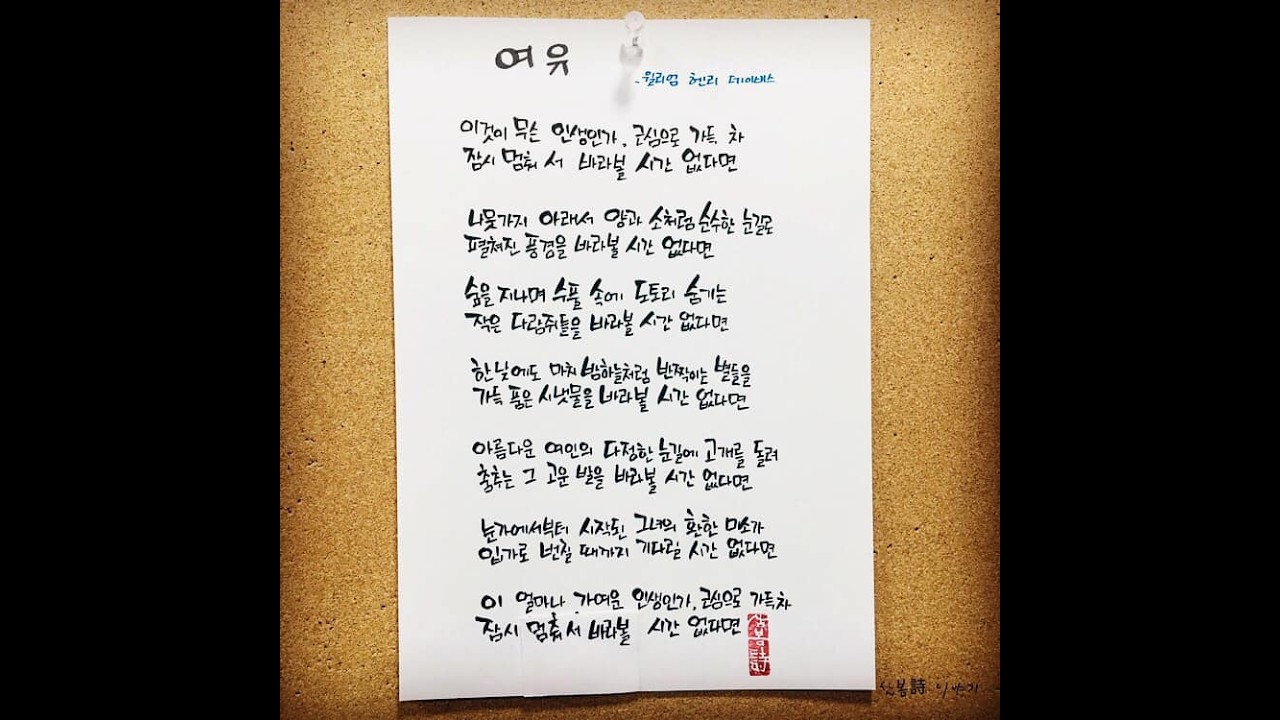 여유
- 윌리엄 헨리 데이비스
이것이 무슨 인생인가, 근심으로 가득 차
잠시 멈춰 서 바라볼 시간 없다면
나뭇가지 아래서 양과 소처럼 순수한 눈길로
펼쳐진 풍경을 바라볼 시간 없다면
숲을 지나며 수풀 속에 도토리 숨기는
작은 다람쥐들을 바라볼 시간 없다면
한낮에도 마치 밤하늘처럼 반짝이는 별들을
가득 품은 시냇물을 바라볼 시간 없다면
아름다운 여인의 다정한 눈길에 고개를 돌려
춤추는 그 고운 발을 바라볼 시간 없다면
눈가에서부터 시작된 그녀의 환한 미소가
입가로 번질 때까지 기다릴 시간 없다면
이 얼마나 가여운 인생인가, 근심으로 가득 차
잠시 멈춰 서 바라볼 시간 없다면